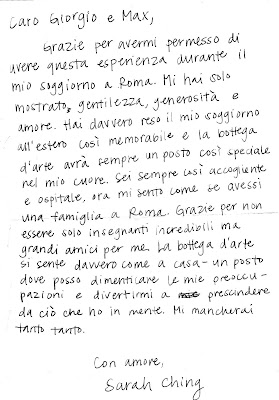 Caro Giorgio e Max,
Grazie per avermi permesso di
avere questa esperienza durante il
mio soggiorno a Roma. Mi hai solo
mostrato, gentilezza, generosità e
amore. Hai davvero reso il mio soggiorno
all'estero così memorabile e la bottega
d'arte avrà sempre un posto così speciale
nel mio cuore. Sei sempre così accogliente
e ospitale, ora mi sento come se avessi
una famiglia a Roma. Grazie per non
essere solo insegnanti incredibili ma
grandi amici per me. La bottega d'arte
si sente davvero come a casa - un posto
dove posso dimenticare le mie preoccu-
pazioni e divertirmi a prescindere
da ciò che ho in mente. Mi mancherai
tanto tanto.
Con amore,
Sarah Ching